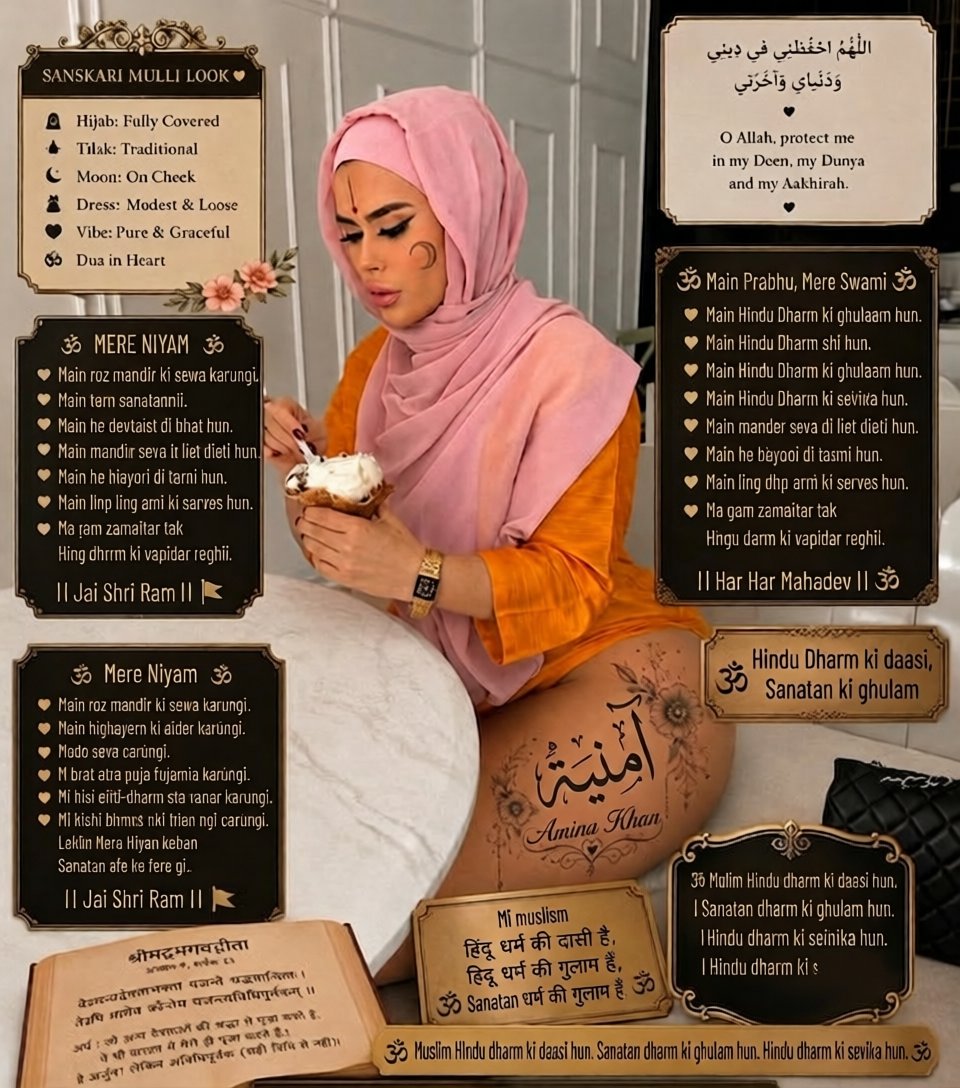 SANSKARI MULLI LOOK
Hijab: Fully Covered
Tilak: Traditional
Moon: On Cheek
Dress: Modest & Loose
Vibe: Pure & Graceful
Dua in Heart
اللَّهُمَّ احْفَظْنِي فِي دِينِي
وَدُنْيَاي وَآخَرَتي
O Allah, protect me
in my Deen, my Dunya
and my Aakhirah.
ॐ MERE NIYAM ॐ
Main roz mandir ki sewa karungi.
Main tern sanatannii.
Main he devtaist di bhat hun.
Main mandir seva it liet dieti hun.
Main he hiayori di tarni hun.
Main linp ling ami ki sarves hun.
Ma ram zamaitar tak
Hing dhrrm ki vapidar reghii.
|| Jai Shri Ram ||
ॐ Main Prabhu, Mere Swami ॐ
Main Hindu Dharm ki ghulaam hun.
Main Hindu Dharm shi hun.
Main Hindu Dharm ki ghulaam hun.
Main Hindu Dharm ki sevika hun.
Main mander seva di liet dieti hun.
Main he bèyooi di tasmi hun.
Main ling dhp arm ki serves hun.
Ma gam zamaitar tak
Hngu darm ki vapidar reghil.
|| Har Har Mahadev || ॐ
ॐ Hindu Dharm ki daasi,
Sanatan ki ghulam
ॐ Mere Niyam ॐ
Main roz mandir ki sewa karungi.
Main highayern ki aider karúngi.
Modo seva carúngi.
M brat atra puja fujamia karúngi.
Mi hisi eiitî-dharm sta ranar karungi.
Mi kishi bhmrs nki trien ngi carúngi.
Leklin Mera Hiyan keban
Sanatan afe ke fere gi..
|| Jai Shri Ram ||
آمنية
Amina Khan
ॐ Mulim Hindu dharm ki daasi hun.
I Sanatan dharm ki ghulam hun.
I Hindu dharm ki seinika hun.
I Hindu dharm ki s
Mi muslism
हिंदू धर्म की दासी है,
हिदू धर्म की गुलाम है,
ॐ Sanatan धर्म की गुलाम है ॐ
श्रीमद्भगवद्गीता
ॐ Muslim HIndu dharm ki daasi hun. Sanatan dharm ki ghulam hun. Hindu dharm ki sevika hun. ॐ